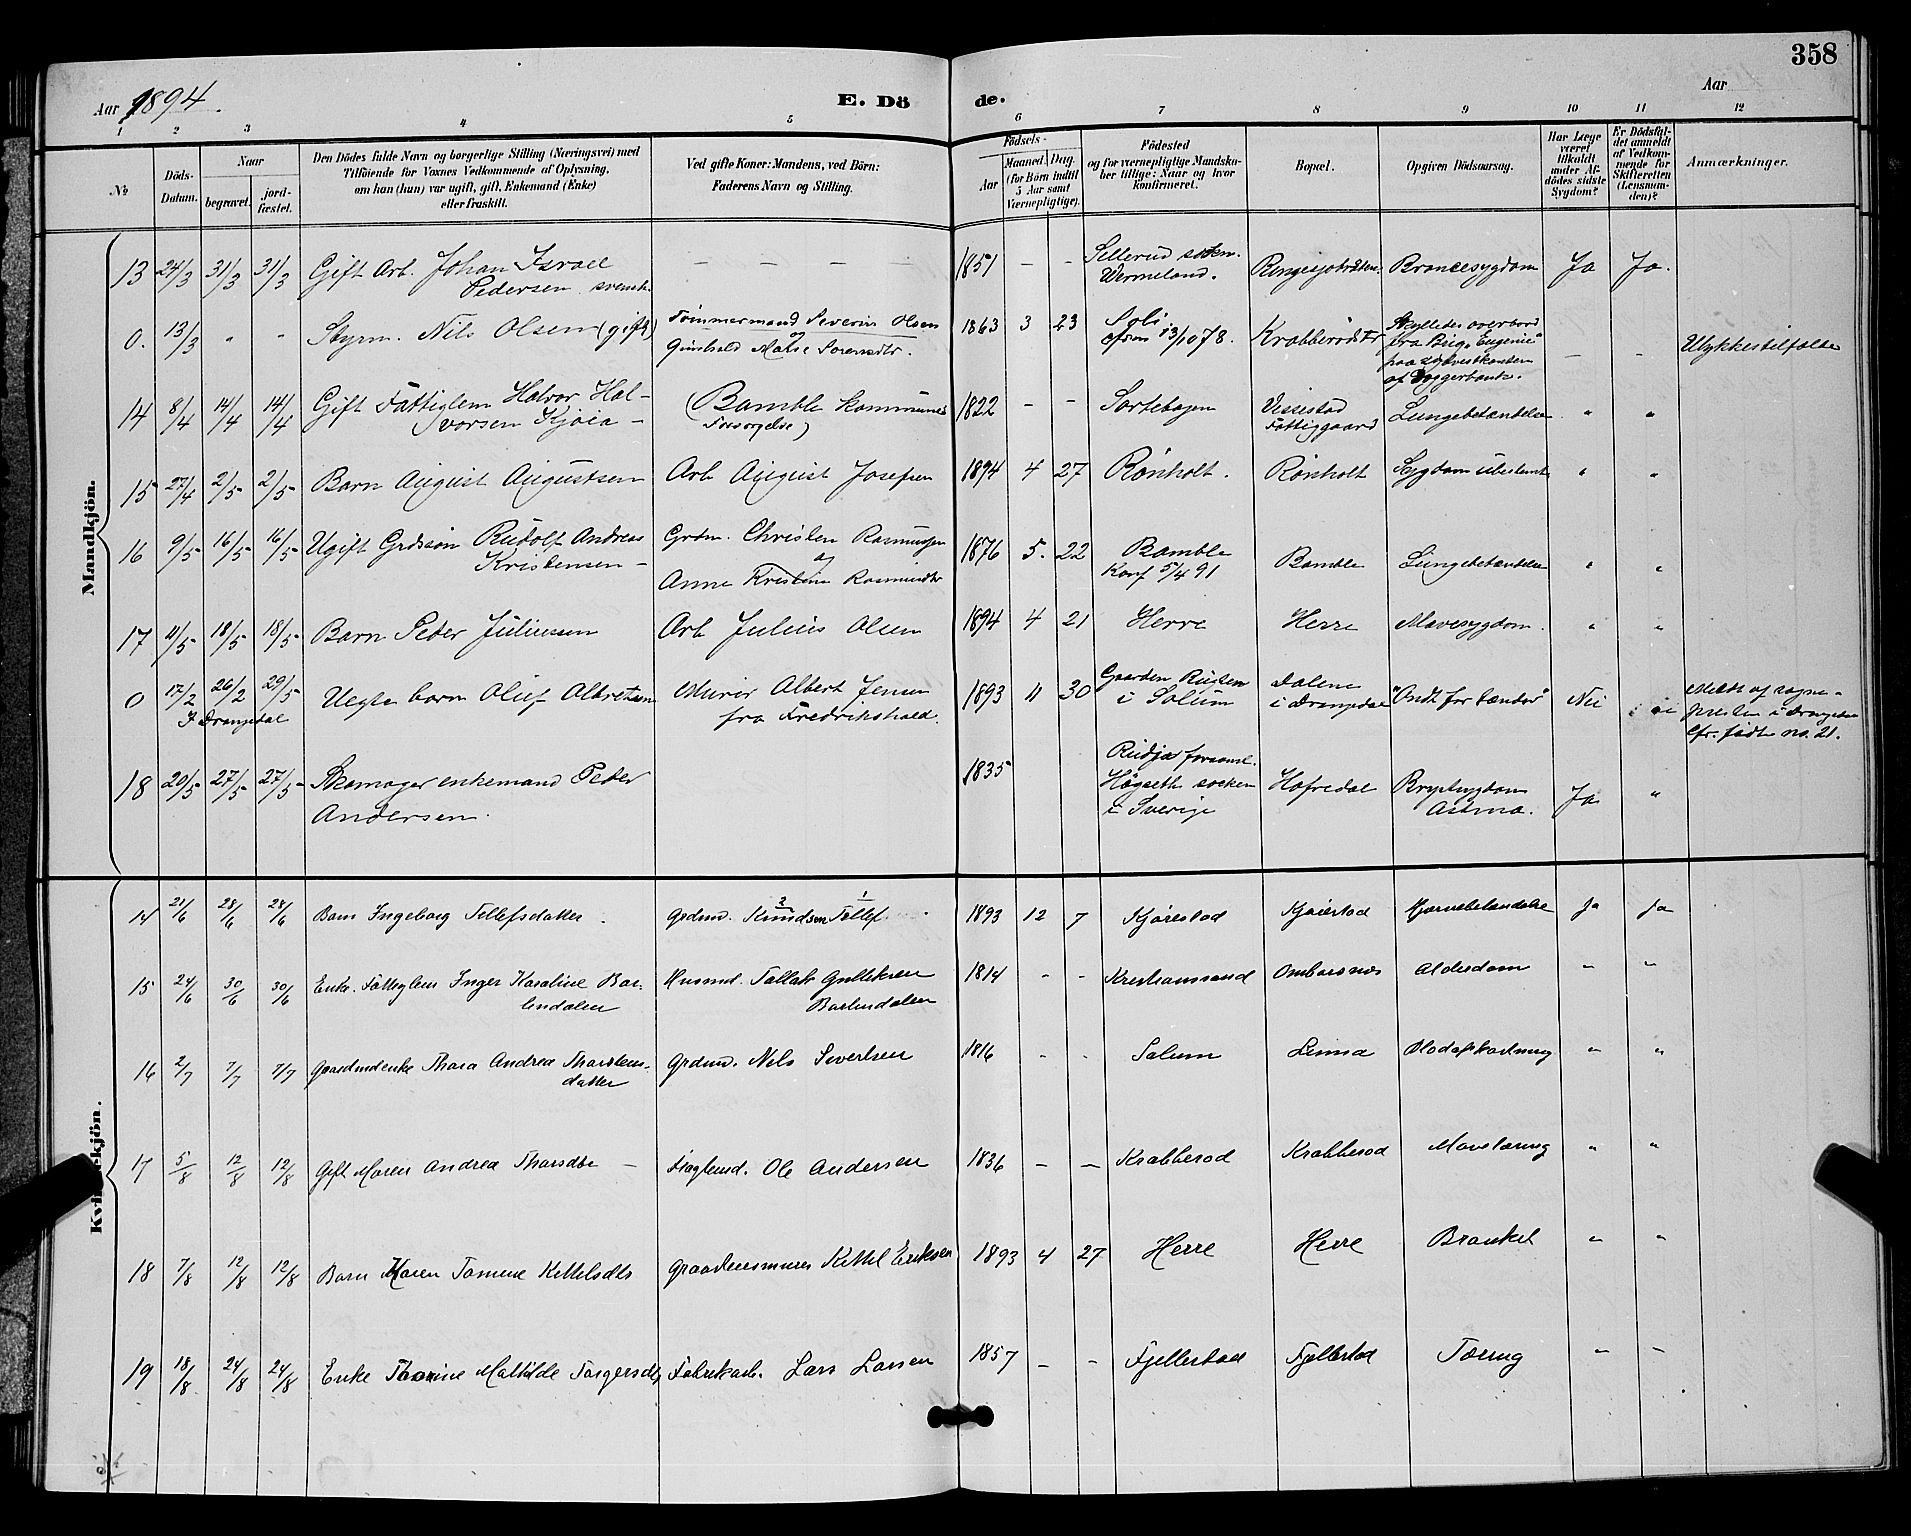 358
Aar 1894.
E. Dö de.
Aar
1 2 3 4 5 6 7 8 9 10 11 12
No
Döds-Datum.
Naar
begravet.
jord-fæstet.
Den Dödes fulde Navn og borgerlige Stilling (Næringsvei) med
Tilföiende for Voxnes Vedkommende af Oplysning,
om han (hun) var ugift, gift, Enkemand (Enke)
eller fraskilt.
Ved gifte Koner: Mandens, ved Börn:
Faderens Navn og Stilling.
Födsels-
Aar
Maaned. Dag.
(for Börn indtil
5 Aar samt
Værnepligtige).
Födested
og for værnepligtige Mandska-
ber tillige: Naar og hvor
konfirmeret.
Bopæl.
Opgiven Dödsaarsag.
Har Læge
været
tilkaldt
under Af-
dödes sidste
Sygdom?
Er Dödsfal-
det anmeldt
af Vedkom-
mende for
Skifteretten
(Lensman-
den)?
Anmærkninger.
Mandkjön.
13 24/3 31/3 31/3 Gift Arb. Johan Israel - - - - - 1851 - - Sillerud soken. Ringesjobråten Brøncesygdom Ja Ja.
Pedersen svensk. Wermeland.
0. 13/3 " " Styrm. Nils Olsen (gift) Tømmermand Severin Olsen 1863 3 23 Soli Krabberødstr Skylledes overbord - - Ulykkestilfælde
og Gunhild Marie Sorensdtr. cfrm 13/10 78. fra Brig "Eugenie"
paa sydvestkanten
af Doggerbank.
14 8/4 14/4 14/4 Gift Fattiglem Halvor Hal- (Bamble Kommunes 1822 - - Sortebogen Vissestad Lungebetændelse " "
vorsen Kjøia - Forsorgelse) Fattiggaard
15 27/4 2/5 2/5 Barn August Augustsen Arb August Josefsen 1894 4 27 Rønholt. Rønholt Sygdom ubestemt " "
16 9/5 16/5 16/5 Ugift Grdssøn Rudolf Andreas Grdm. Christen Rasmussen 1876 5. 22 Bamble Bamble Lungebetændelse " "
Kristensen - og Anne Kristine Rasmusdtr Konf 5/4 91
17 11/5 18/5 18/5 Barn Peder Juliussen Arb Julius Olsen 1894 4 21 Herre Herre Mavesygdom. " "
0 17/2 26/2 29/5 Uegte barn Oluf Albretsen Murer Albert Jensen 1893 11 30 Gaarden Rugtem Dalene "Ondt for tænder" Nei Meldt af sogne-
I Drangedal fra Fredrikshald. i Solum i Drangedal presten i Drangedal
Cfr. fødte no. 21.
18 20/5 27/5 27/5 Skomager enkemand Peder 1835 Hofredal Brystsygdom Ja "
Andersen. Högseth socken Astma.
i Sverige
Kvindekjön.
14 21/6 28/6 28/6 Barn Ingeborg Tellefsdatter. Grdmd. Knudsen Tellef 1893 12 7 Kjørestad Kjørestad Hjernebetændelse Ja Ja
15 24/6 30/6 30/6 Enke. Fattiglem Inger Karoline Bar- Husmd. Tallak Gulliksen 1814 - - Kristianssand Ombarsnes Alderdom " "
lindalen Barlindalen
16 2/7 7/7 7/7 Gaardmdenke Thara Andrea Tharstens- Grdmd. Nils Sivertsen 1816 - - Solum Linna Blodopkastning " "
datter
17 5/8 12/8 12/8 Gift Maren Andrea Tharsdtr - Ole Andersen 1836 - - Krabberød Krabberød Mavetæring " "
18 7/8 12/8 12/8 Barn Karen Tomine Kittelsdtr Kittel Eriksen 1893 4 27 Herre Herre Bronkit " "
19 18/8 24/8 24/8 Enke Thorine Mathilde Torgersdtr Fabrikarb. Lars Larsen 1857 - - Fjellestad Fjellestad Tæring " "